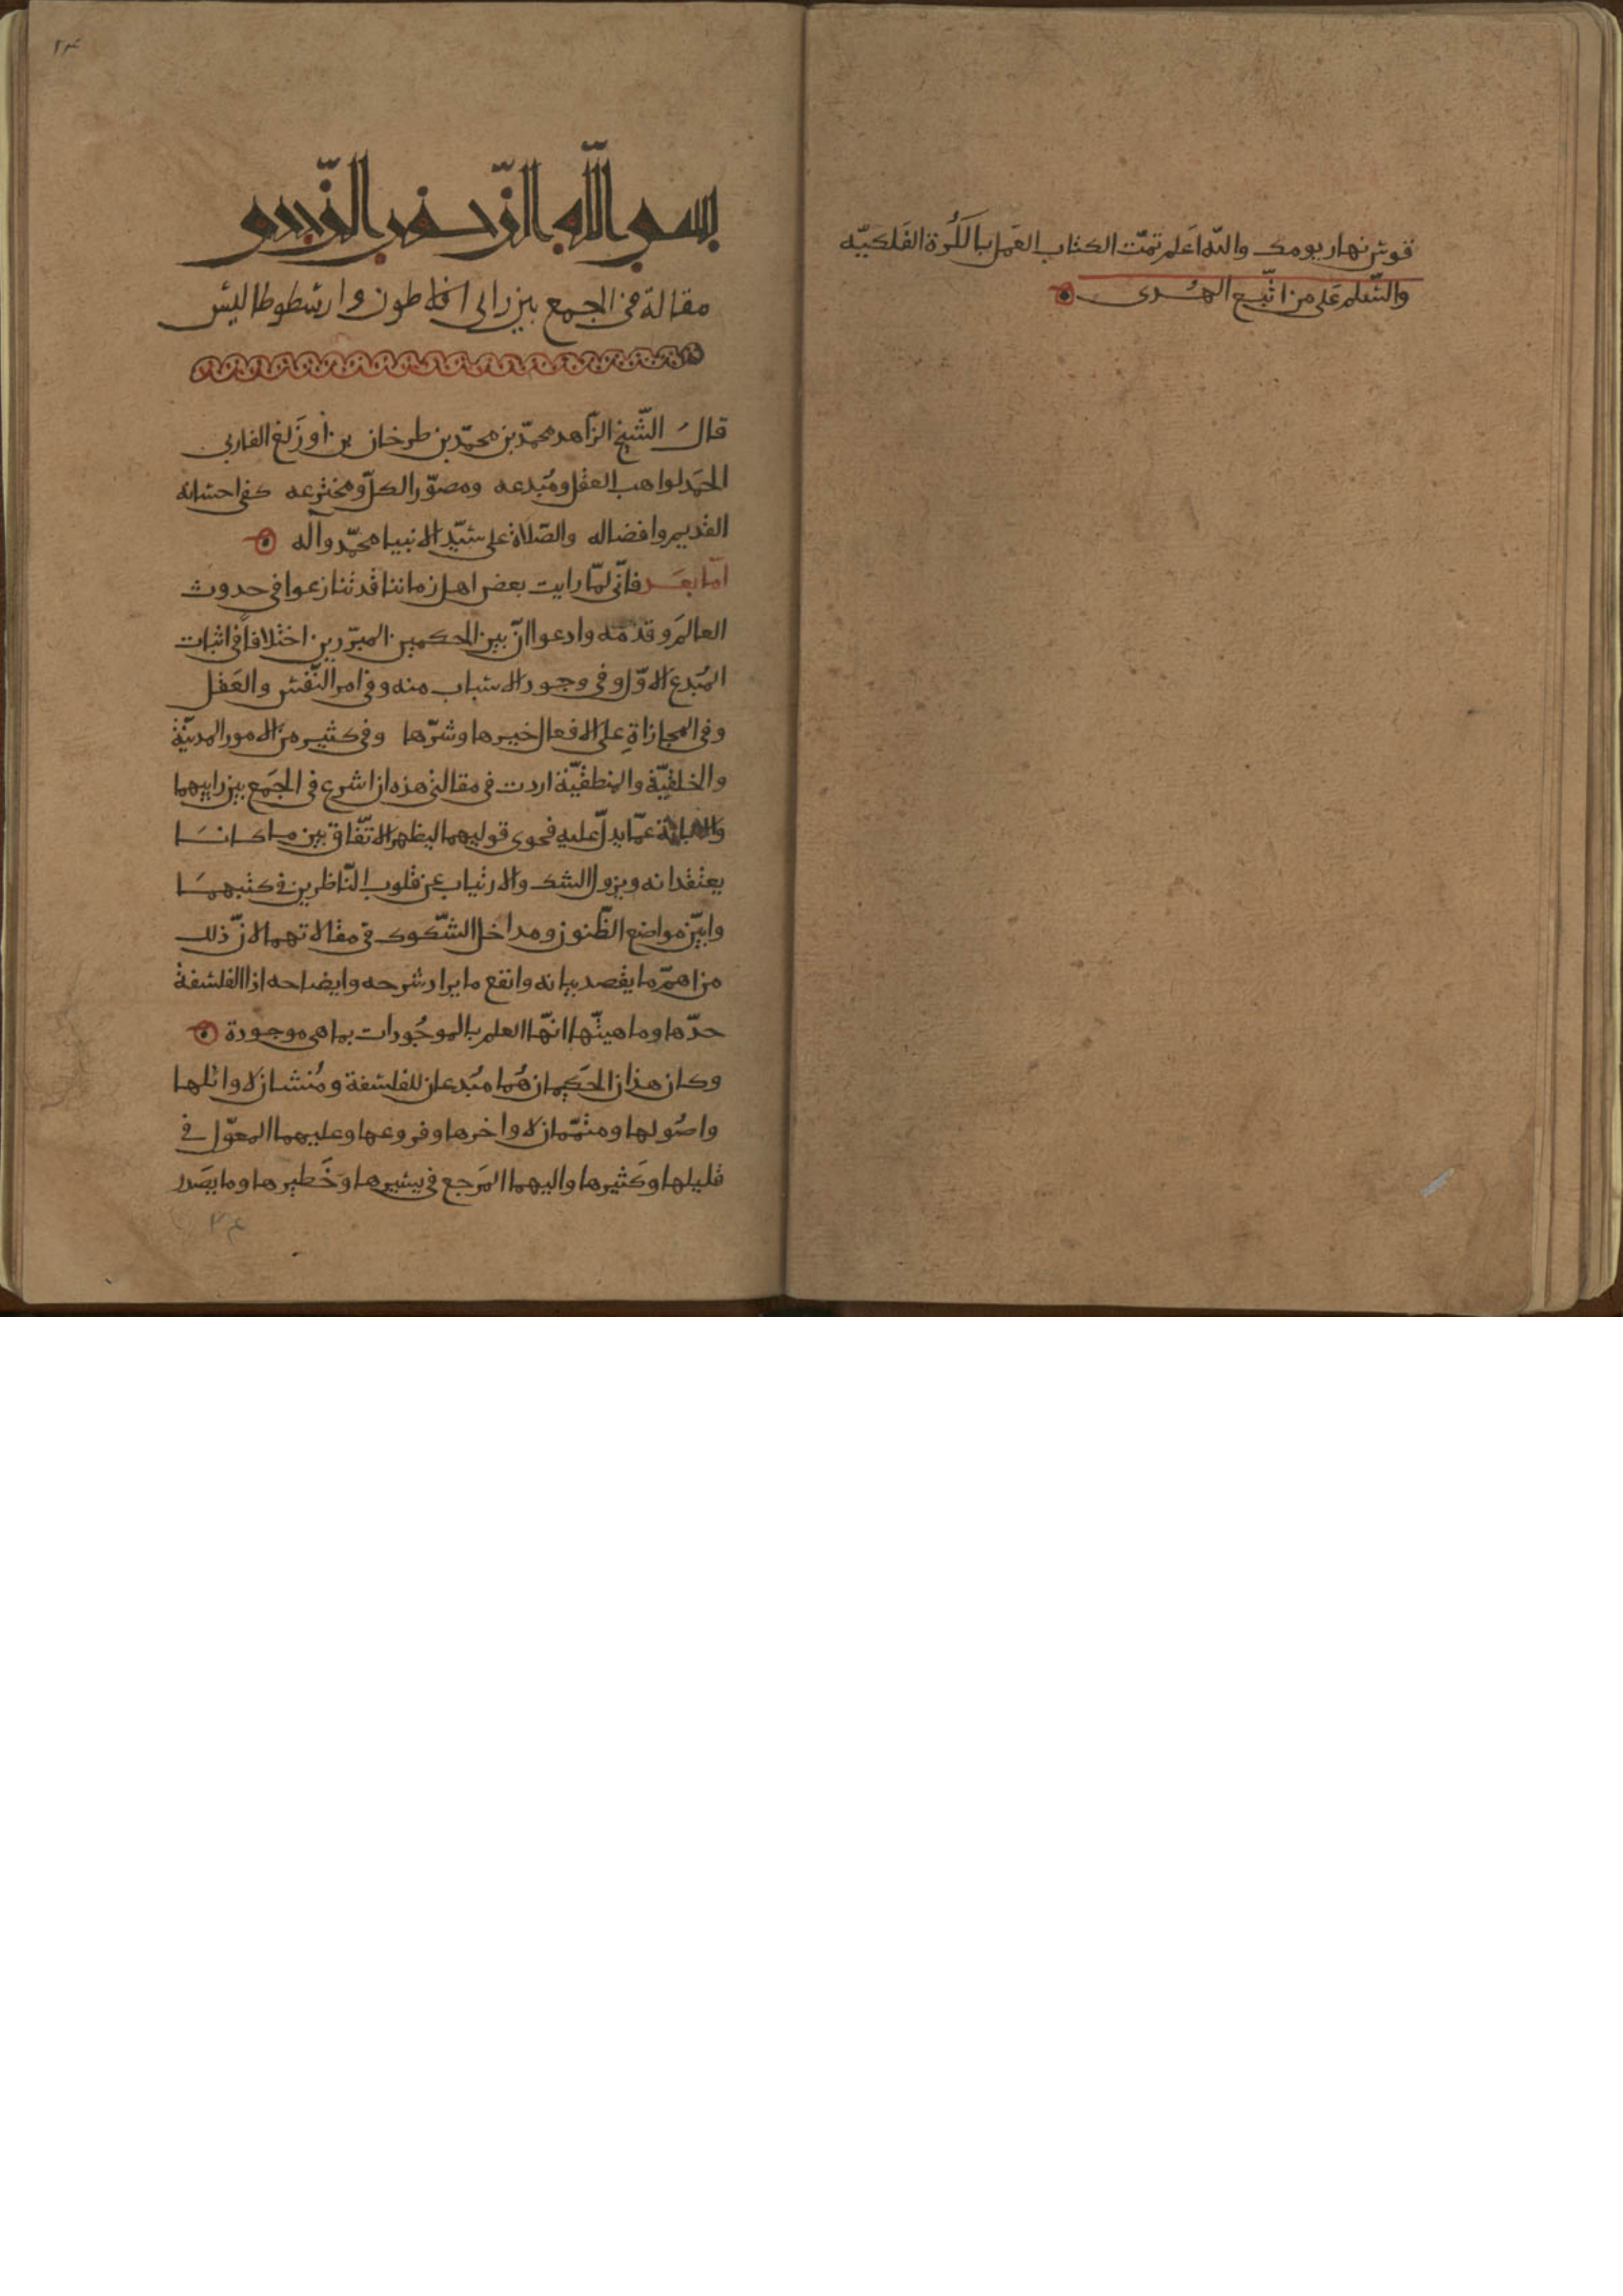 قوس نهار يومك والله اعلم تمّت الكتاب العمل بالكُرة الفلكيّه
والسّلم على من اتّبع الهُدى
٢٤
بسم الله الرّحمن الرّحيم
مقالة في الجمع بين رايى افلاطون وارسطوطاليس
قال الشّيخ الزّاهد محمّد بن محمّد بن طرخان بن اوزَلغ الفاربي
الحمَد لواهب العقل ومُبدعه ومصوّر الكلّ ومخترعه كفى احسانه
القديم وافضاله والصّلاة على سيّد الانبيا محمّد وآله
امّا بعَد فانّى لمّا رايت بعض اهل زماننا قد تنازعوا في حدوث
العالَم وقدمَه وادعوا انّ بين الحكمين المبرّزين اختلافاً في اثبات
المُبدع الاوّل وفي وجود الاسباب منه وفي امر النّفس والعَقل
وفي المجازاةِ على الافعال خيرها وشرّها وفي كثير من الامور المدنيّة
والخلقيّة والمنطقيّة اردت في مقالتى هذه ان اشرع في الجَمع بين راييهما
والابانة عمّا يدلّ عليه فحوى قوليهما ليظهر الاتّفاق بين ما كانَا
يعتقدانه ويزول الشك والارتياب عن قلوب النّاظرين في كتبهمَا
وابيّن مواضع الظّنون ومداخل الشّكوك في مقالاتهما لانّ ذلك
من اهمّ ما يقصد بيانه وانفع ما يراد شرحه وايضاحه اذا الفلسفة
حدّها وماهيتّها انّها العلم بالموجُودات بما هي موجودة
وكان هذان الحَكيمان هُما مُبدعان للفلسفة ومُنشان لاوائلها
واصُولها ومتمّمان لاواخرها وفروعها وعليهما المعوّل في
قليلها وكَثيرها واليهما المَرجع في يسيرها وخَطيرها وما يصَدر
٢٤